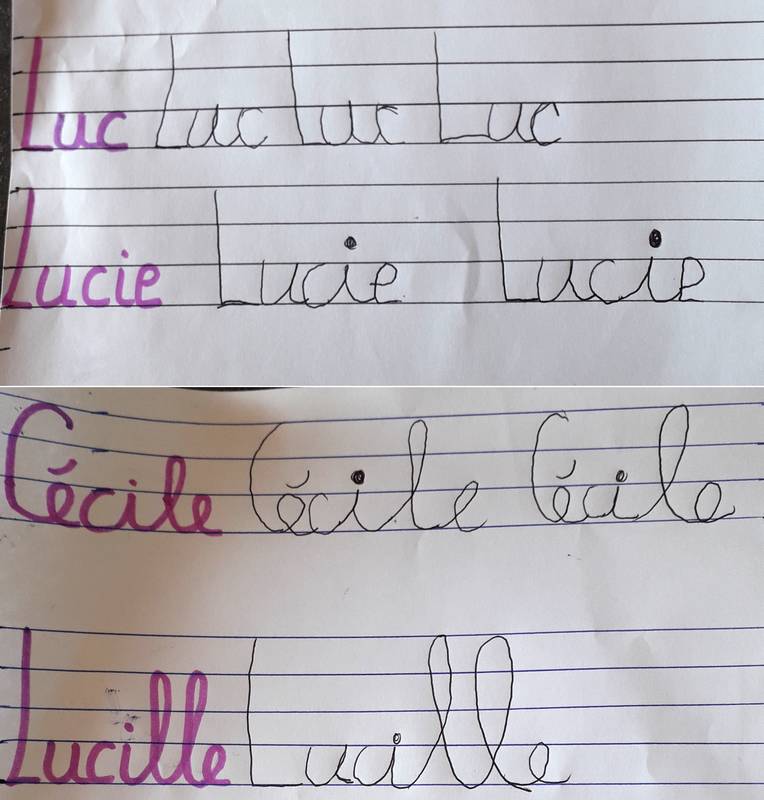 Luc Luc Luc Luc
Lucie Lucie Lucie
Cécile Cécile Cécile
Lucille Lucille